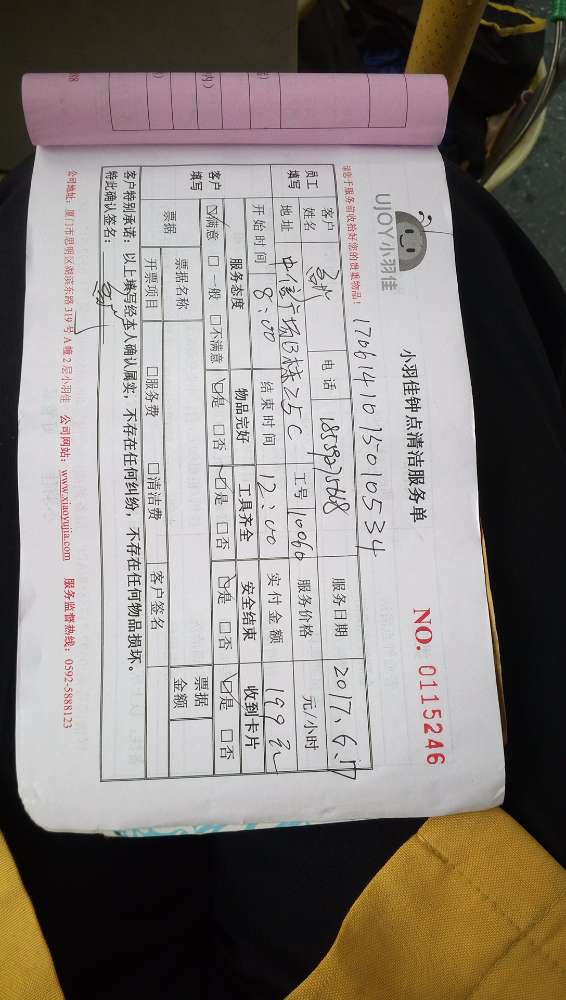 UJOY小羽佳
小羽佳钟点清洁服务单
NO. 0115246
1706141075010534
请您于服务前收拾好您的贵重物品!
员工填写
客户姓名 电话 服务日期 2017.6.17
地址 中信广场B栋25C 工号 10060 服务价格 元/小时
开始时间 8:00 结束时间 12:00 实付金额 199元
客户填写
服务态度 物品完好 工具齐全 安全结束 收到卡片
☑满意 □一般 □不满意 ☑是 □否 ☑是 □否 ☑是 □否 ☑是 □否
票据 票据名称 票据金额
开票项目 □服务费 □清洁费 客户签名
客户特别承诺:以上填写经本人确认属实,不存在任何纠纷,不存在任何物品损坏。
特此确认签名:
公司地址:厦门市思明区湖滨东路319号A幢2层小羽佳 公司网站:www.xiaoyujia.com 服务监督热线:0592-5888123